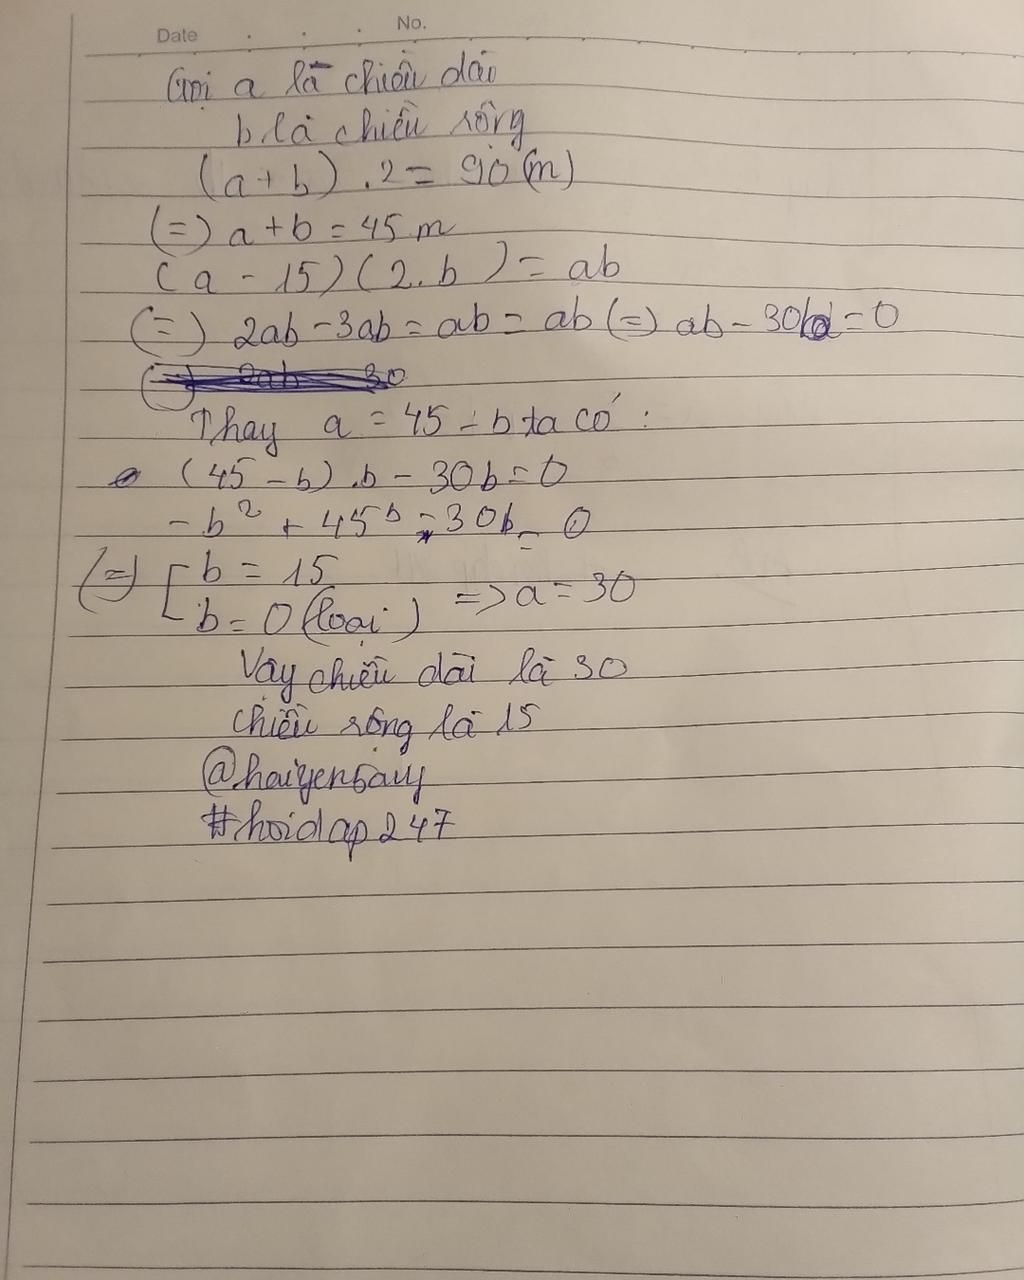 Date . . . No.
Gọi a là chiều dài
b là chiều rộng
(a + b) . 2 = 90 (m)
(=) a + b = 45 m
(a - 15) (2. b) = ab
(=) 2ab - 3ab = ab = ab (=) ab - 30b = 0
Thay a = 45 - b ta có :
(45 - b) . b - 30b = 0
- b² + 45b - 30b = 0
(=) [ b = 15
b = 0 (loại) => a = 30
Vậy chiều dài là 30
chiều rộng là 15
@haiyen5auy
#hoidap247